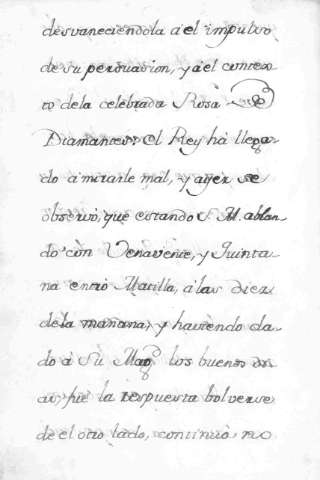 desvaneciendola a el impulso
de su persuacion, y a el contex-
to dela celebrada Rosa de
Diamantes: El Rey há llega-
do a mirarle mal, y ayer se
observó, que estando S. M. ablan-
do con Venavente, y Quinta-
na entró Matilla, a las diez
dela mañana, y haviendo da-
do a Su Mag.d los buenos di-
as, fue la respuesta bolverse
de el otro lado, continuó no